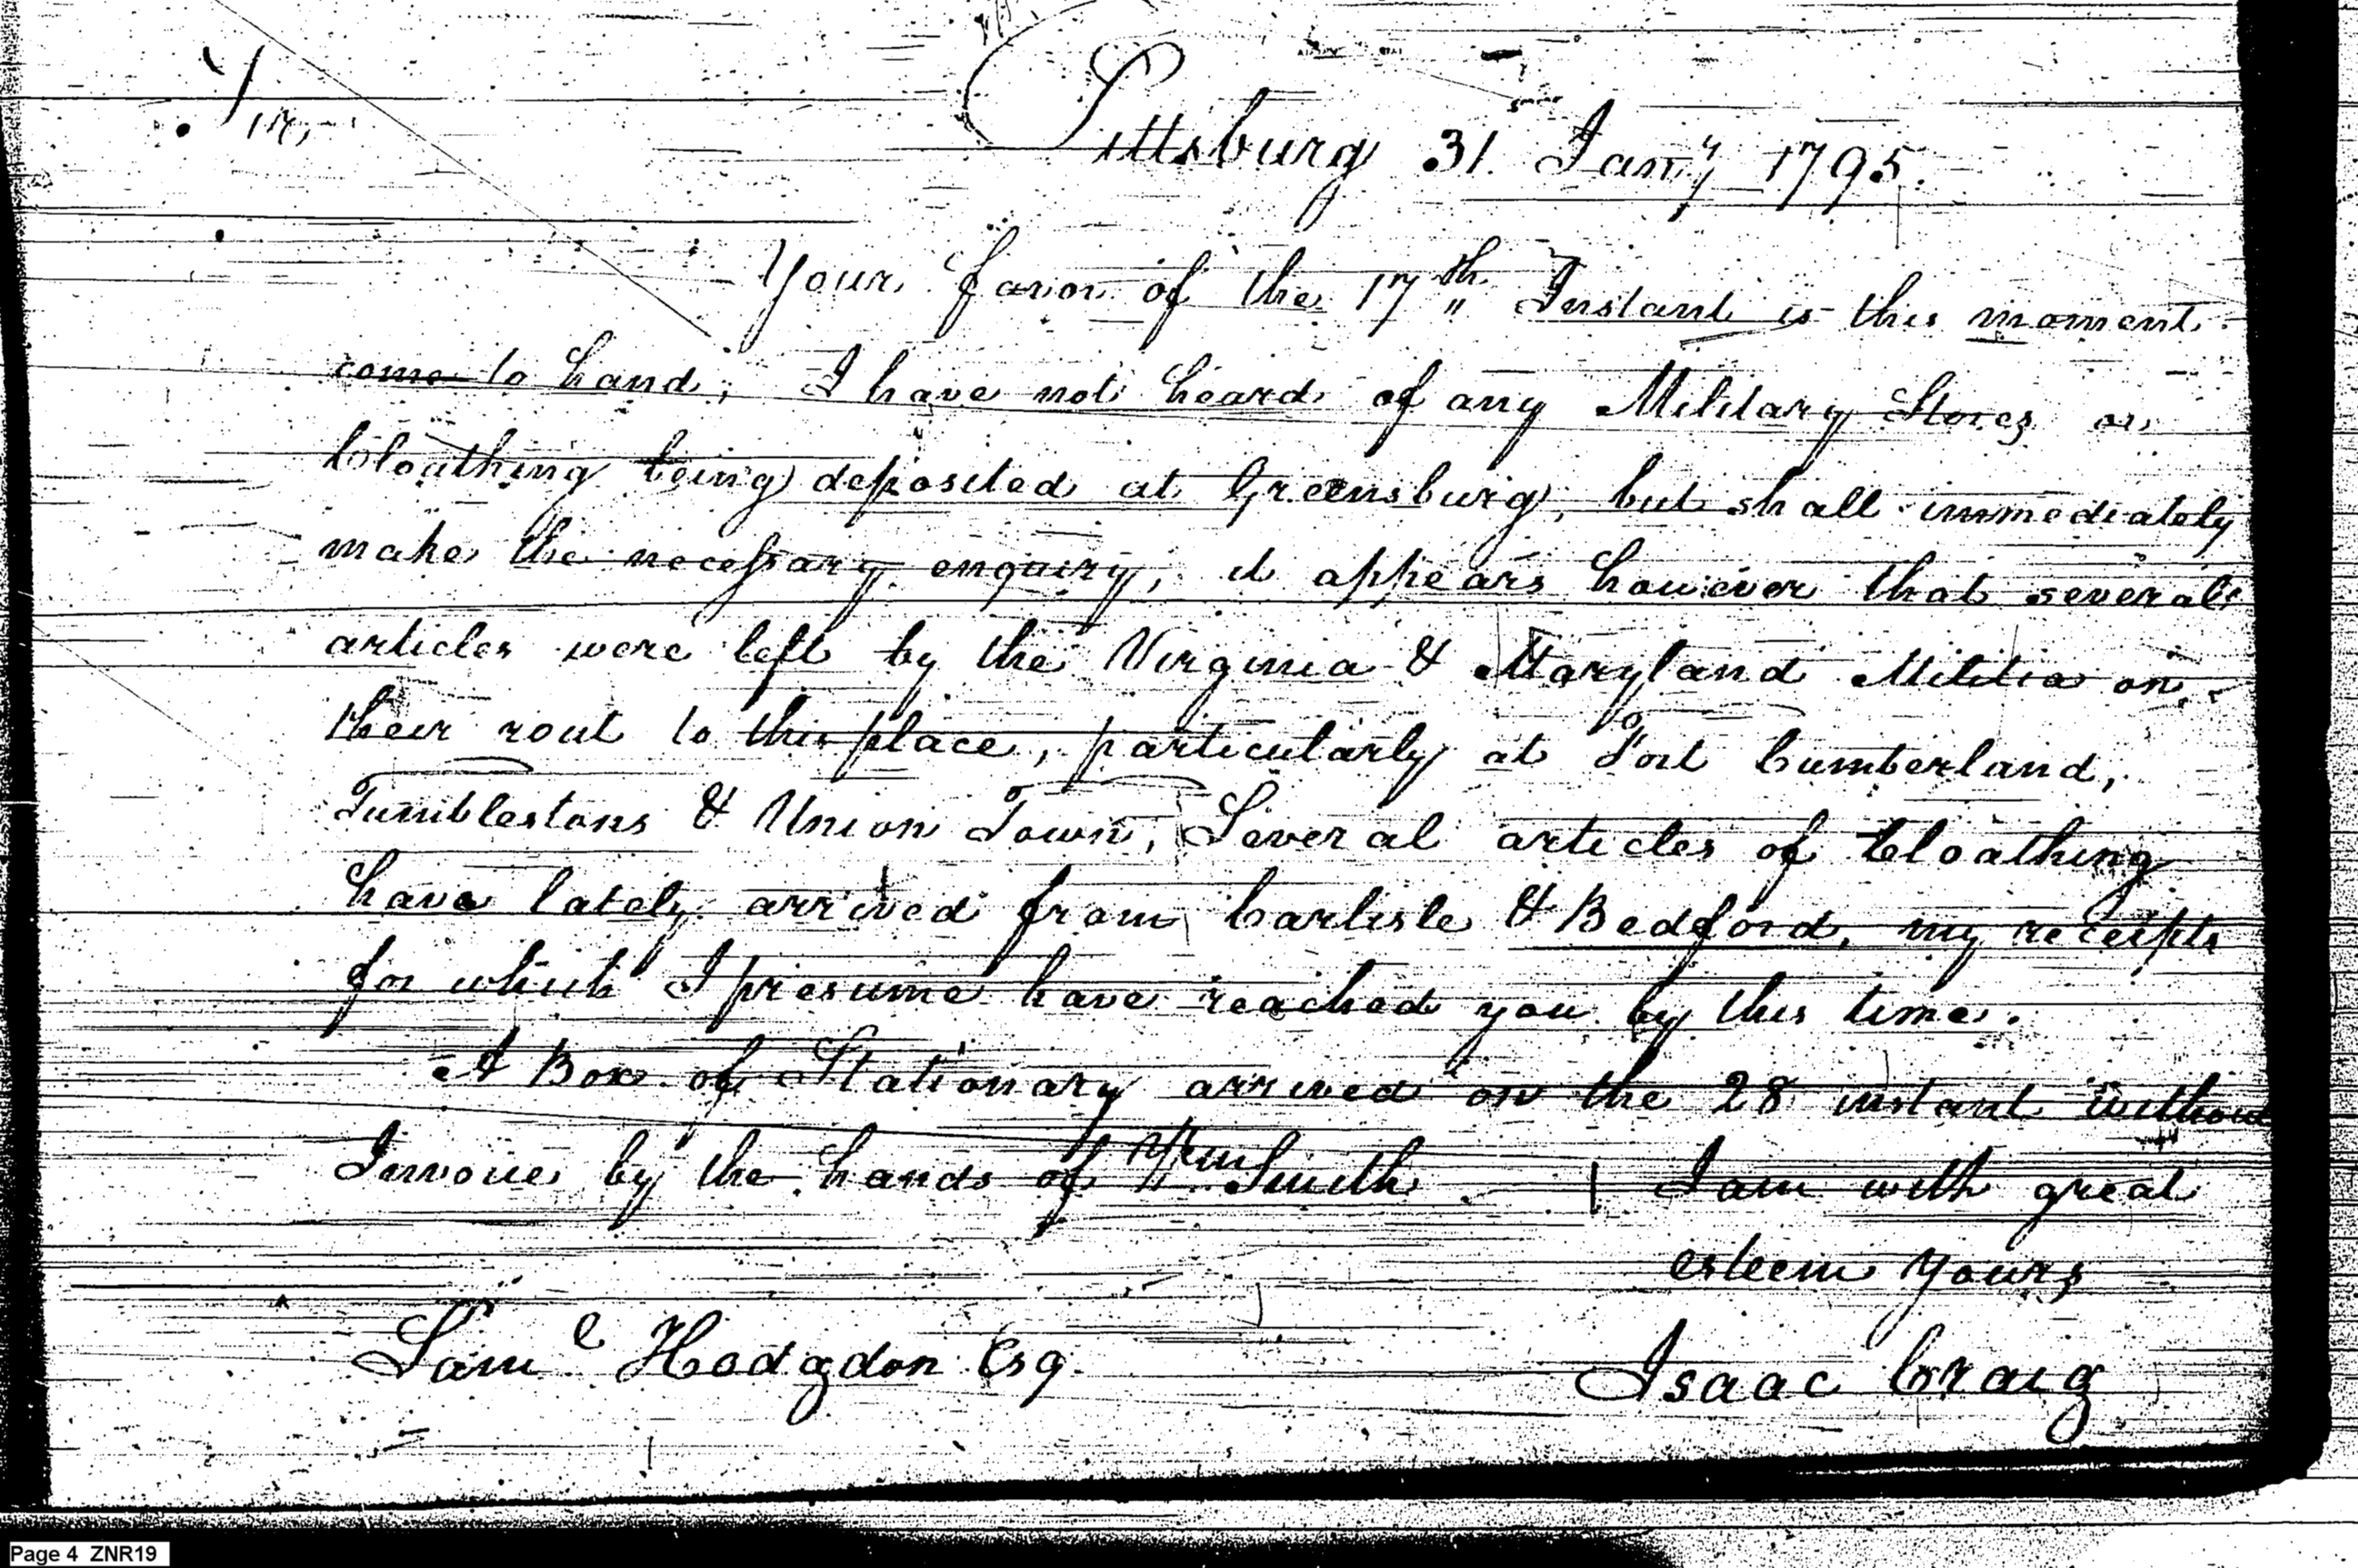 Sir,
Pittsburg 31. Jany 1795.
Your favor of the 17th Instant is this moment
come to hand; I have not heard of any Military Stores or
Cloathing being deposited at Greensburg, but shall immediately
make the necessary enquiry, it appears however that several
articles were left by the Virginia & Maryland Militia on
their rout to this place, particularly at Fort Cumberland,
Tumblestons & Union Town, Several articles of Cloathing
have lately arrived from Carlisle & Bedford, my receipts
for which I presume have reached you by this time.
A Box of Stationary arrived on the 28 instant without
Invoice by the hands of Wm Smith. I am with great
esteem Yours
Saml Hodgdon Esq. Isaac Craig
Page 4 ZNR19